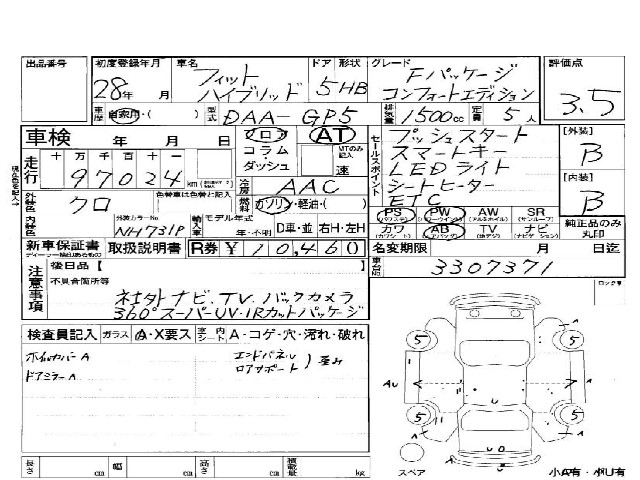 出品番号
初度登録年月 車名 ドア 形状 グレード 評価点
28年 月 フィット ハイブリッド 5 HB Fパッケージ コンフォートエディション 3.5
車歴 自家用・( ) 型式 DAA-GP5 排気量 1500cc 定員 5人
車検 年 月 日 フロア コラム ダッシュ AT MTのみ記入 速
走行 十万千百十一 97024 km
セールスポイント プッシュスタート
スマートキー
LEDライト
シートヒーター
ETC
[外装] B
[内装] B
冷房 AAC
外装色 クロ 色替車は色替と記入
内装色 外装カラーNo NH731P
燃料 ガソリン・軽油・( )
輸入車 モデル年式 年・不明 D車・並 右H・左H
PS PW AW SR
カワ AB TV ナビ
純正品のみ丸印
新車保証書 取扱説明書 R券 ¥10,460 名変期限 月 日迄
注意事項 後日品【
不具合箇所等
社外ナビ.TV.バックカメラ
360°スーパーUV・IRカットパッケージ
車台No 3307371
ロック有
検査員記入 ガラス A・X要ス 室内 シート A・コゲ・穴・汚れ・破れ
ホイルカバーA エンドパネル
ドアミラーA ロアサポート 歪み
5 5
A AU A
5 5
スペア
小A有・小U有
長さ cm 幅 cm 高さ cm 積載量 kg